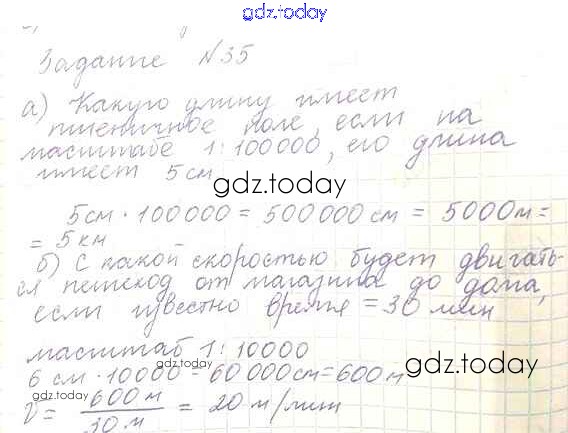 gdz.today
Задание №35
а) Какую длину имеет
пшеничное поле, если на
масштабе 1:100000, его длина
имеет 5 см
gdz.today
5 см · 100000 = 500000 см = 5000 м =
= 5 км
б) С какой скоростью будет двигать-
ся пешеход от магазина до дома,
если известно время = 30 мин
масштаб 1:10000
gdz.today
gdz.today
6 см · 10000 = 60000 см = 600 м
V = 600 м / 30 м = 20 м/мин
gdz.today